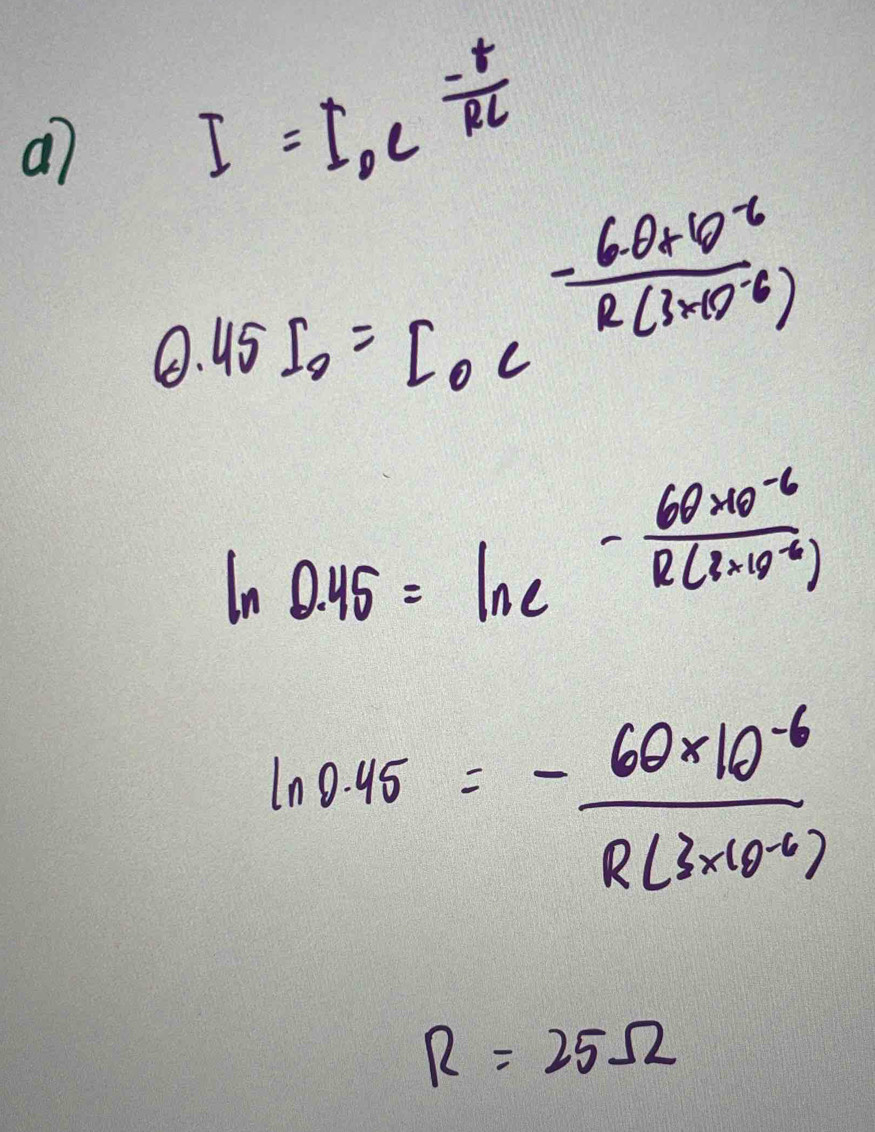 a) I = I₀e^(-t/RC)
0.45 I₀ = I₀ e^(-6.0×10^-6/R(3×10^-6))
ln 0.45 = ln e^(-60×10^-6/R(3×10^-6))
ln 0.45 = -60×10^-6/R(3×10^-6)
R = 25 Ω